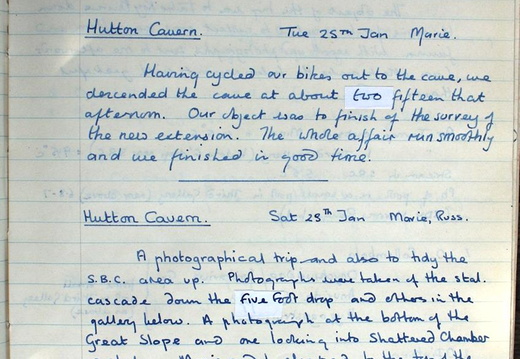 Hutton Cavern. Tue 25th Jan Marie.
Having cycled our bikes out to the cave, we
descended the cave at about two fifteen that
afternoon. Our object was to finish of the survey of
the new extension. The whole affair run smoothly
and we finished in good time.
Hutton Cavern. Sat 28th Jan Marie, Russ.
A photographical trip and also to tidy the
S.B.C. area up. Photographs were taken of the stal.
cascade down the Five Foot drop and others in the
gallery below. A photograph at the bottom of the
Great Slope and one looking into Shattered Chamber